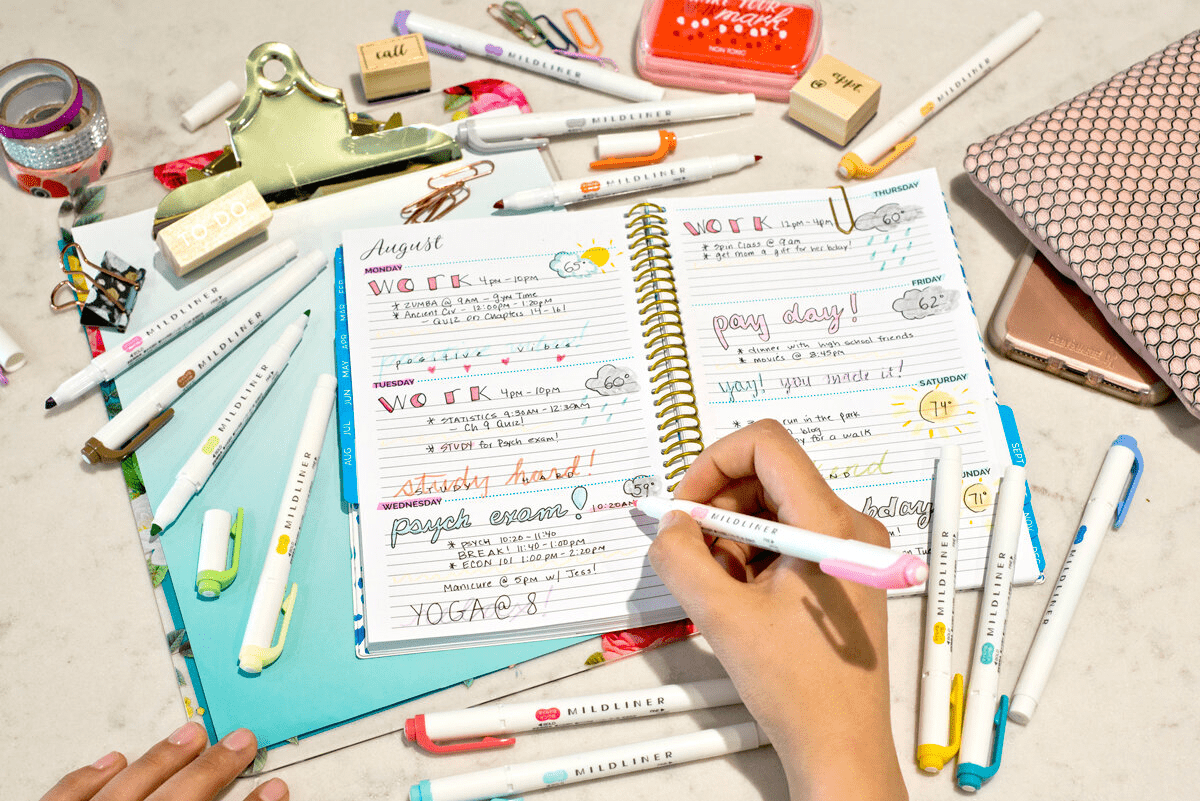 call
YOUR
mark
NON TOXIC
appt.
TO-DO
MILDLINER
MILDLINER
MILDLINER
MILDLINER
MILDLINER
MILDLINER
MILDLINER
MILDLINER
FEB
MAR
APR
MAY
JUN
JUL
AUG
August
MONDAY
65°
WORK 4pm-10pm
* ZUMBA @ 9AM - gym Time
* Ancient Civ - 12:00PM - 1:20PM
- QUIZ on Chapters 14-16!
positive vibes
TUESDAY
60°
WORK 4pm-10pm
* STATISTICS 9:30AM - 12:30PM
- Ch 9 Quiz!
* STUDY for Psych exam!
study hard!
WEDNESDAY
59°
psych exam! 10:20AM
* PSYCH 10:20 - 11:40
BREAK! 11:40 - 1:00PM
* ECON 101 1:00PM - 2:20PM
Manicure @ 5pm w/ Jess!
YOGA @ 8
THURSDAY
WORK 12pm-4pm
60°
* Spin Class @ 9am
* get mom a gift for her bday!
FRIDAY
62°
pay day!
* dinner with high school friends
* movies @ 8:45pm
yay! you made it!
SATURDAY
74°
run in the park
blog
for a walk
SUNDAY
71°
bday
SEPT
NOV
DEC
MILDLINER
MILDLINER
MILDLINER
MILDLINER
MILDLINER
MILDLINER